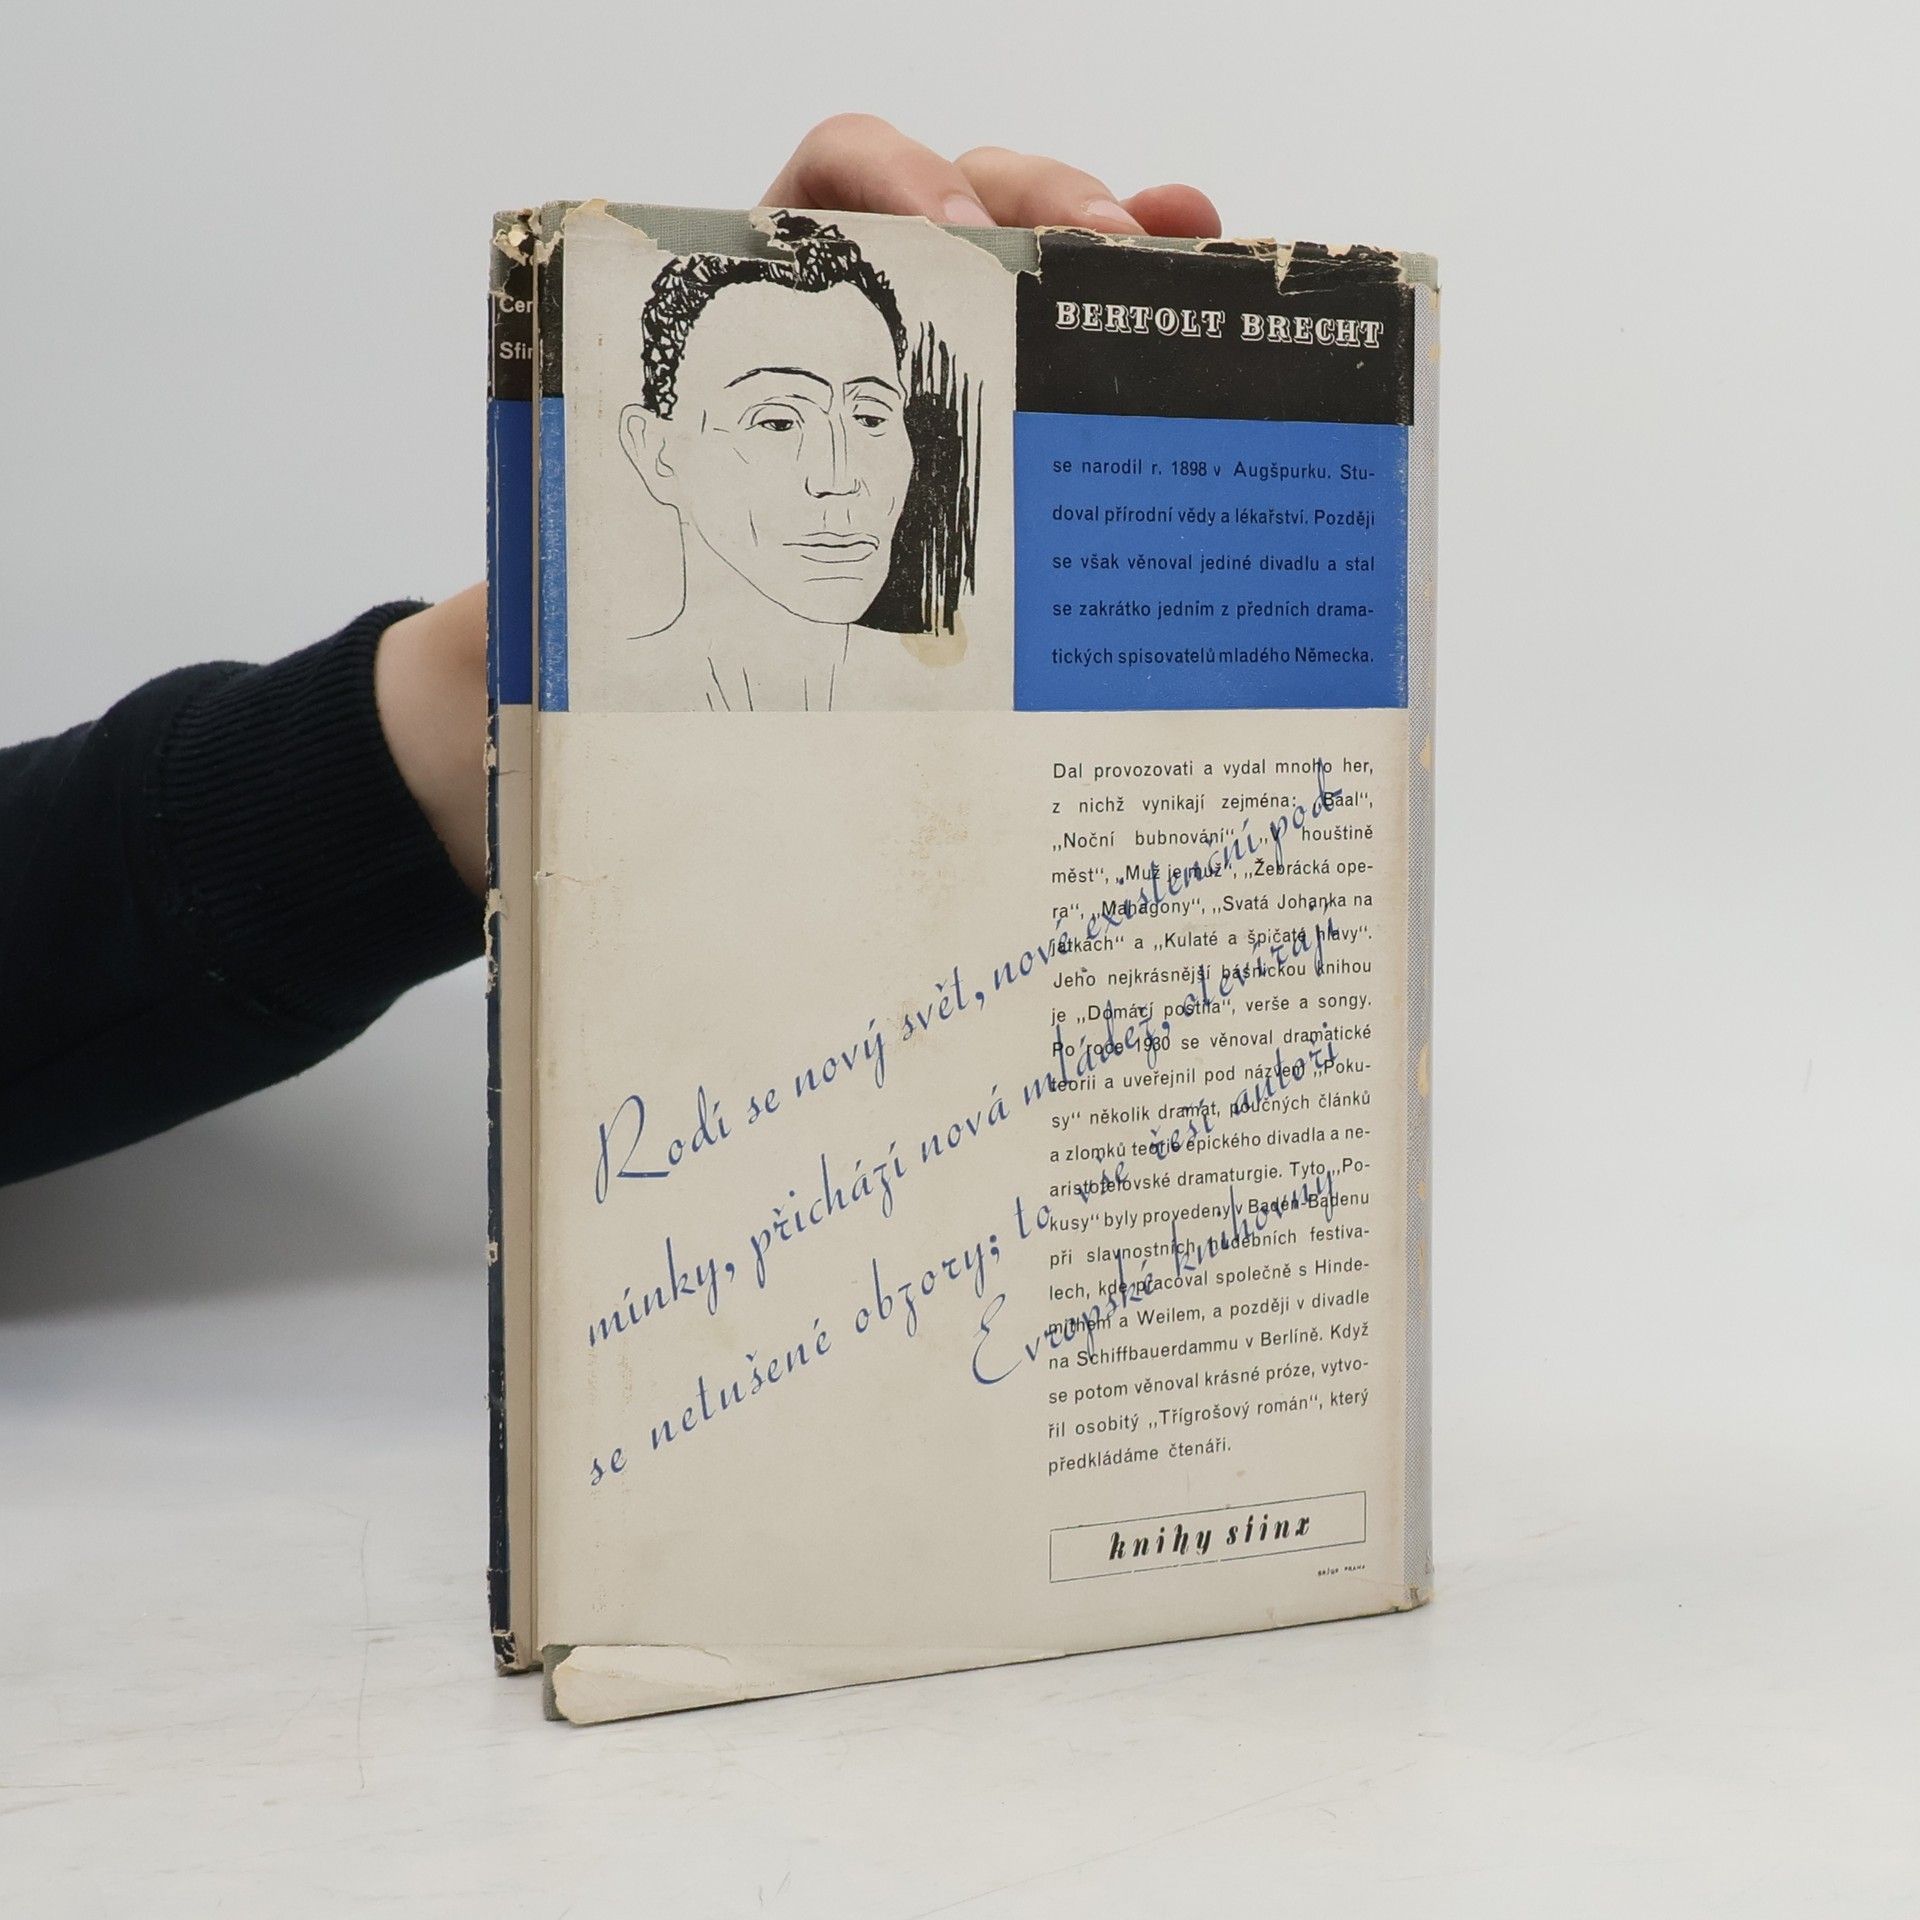 Cer
Sfin
BERTOLT BRECHT
se narodil r. 1898 v Augšpurku. Stu-
doval přírodní vědy a lékařství. Později
se však věnoval jediné divadlu a stal
se zakrátko jedním z předních drama-
tických spisovatelů mladého Německa.
Dal provozovati a vydal mnoho her,
z nichž vynikají zejména: „Baal“,
„Noční bubnování“, „V houštině
měst“, „Muž je muž“, „Žebrácká ope-
ra“, „Mahagony“, „Svatá Johanka na
jatkách“ a „Kulaté a špičaté hlavy“.
Jeho nejkrásnější básnickou knihou
je „Domácí postila“, verše a songy.
Po roce 1930 se věnoval dramatické
teorii a uveřejnil pod názvem „Poku-
sy“ několik dramat, poučných článků
a zlomků teorie epického divadla a ne-
aristotelovské dramaturgie. Tyto „Po-
kusy“ byly provedeny v Baden-Badenu
při slavnostních hudebních festiva-
lech, kde pracoval společně s Hinde-
mithem a Weilem, a později v divadle
na Schiffbauerdammu v Berlíně. Když
se potom věnoval krásné próze, vytvo-
řil osobitý „Třígrošový román“, který
předkládáme čtenáři.
Rodí se nový svět, nové existenční pod-
mínky, přichází nová mládež, otevírají
se netušené obzory; to vše češí autoři
Evropské knihovny
knihy sfinx